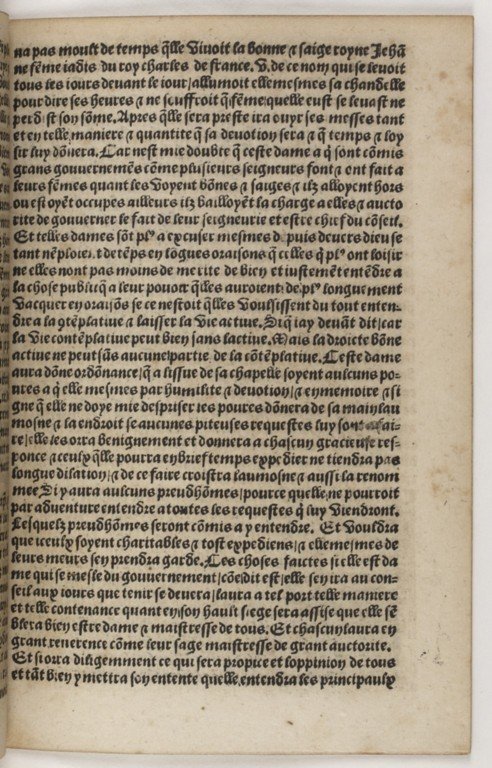 na pas moult de temps q̃lle viuoit la bonne ⁊ saige royne Jehã
ne fẽme iadis du roy charles de france. V. de ce nom qui se leuoit
tous les iours deuant le iour/allumoit elle mesmes sa chandelle
pour dire ses heures ⁊ ne souffroit q̃ fẽme quelle eust se leuast ne
perdist son sõme. Apres q̃lle sera preste ira ouyr ses messes tant
et en telle maniere ⁊ quantite q̃ sa deuotion sera ⁊ q̃ temps ⁊ loy
sir luy dõnera. Car nest mie doubte q̃ ceste dame a q̃ sont cõmis
grans gouuernemẽs cõme plusieurs seigneurs font ⁊ ont fait a
leurs fẽmes quant les voyent bõnes ⁊ saiges ⁊ ilz alloyent hors
ou estoyẽt occupes ailleurs ilz bailloyẽt la charge a elles ⁊ aucto
rite de gouuerner le fait de leur seigneurie et estre chief du cõseil.
Et telles dames sõt plꝰ a excuser mesmes de puis deuers dieu se
tant nẽploiẽt de tẽps en lõgues oraisons q̃ celles q̃ plꝰ ont loisir
ne elles nont pas moins de merite de biẽ et iustemẽt entẽdre a
la chose publicq̃ a leur pouoir q̃lles auroient de plꝰ longuement
vacquer en oraisõs se ce nestoit q̃lles voulsissent du tout enten-
dre a la ꝯtẽplatiue ⁊ laisser la vie actiue. Si q̃ iay deuãt dit/car
la vie contẽplatiue peut biẽ sans lactiue. Mais la droicte bõne
actiue ne peut sãs aucune partie de la cõtẽplatiue. Ceste dame
aura dõne ordõnance/q̃ a lissue de sa chapelle soyent aulcuns po-
ures a q̃ elle mesmes par humilite ⁊ deuotion/⁊ en memoire ⁊ si
gne q̃ elle ne doye mie despriser les poures dõnera de sa main lau
mosne ⁊ la endroit se aucunes piteuses requestes luy sont a fai-
re/elle les orra benignement et donnera a chascun gracieuse res-
ponce ⁊ ceulx q̃lle pourra en brief temps expedier ne tiendra pas
longue dilation/⁊ de ce faire croistra laumosne ⁊ aussi la renom
mee. Si y aura aulcuns preudhõmes/pource quelle ne pourroit
par aduenture entendre a toutes les requestes q̃ luy viendront.
Lesquelz preudhõmes seront cõmis a y entendre. Et vouldra
que iceulx soyent charitables ⁊ tost expediens/⁊ elle mesmes de
leurs meurs sen prendra garde. Ces choses faictes si elle est da
me qui se mesle du gouuernement/cõe dit est/elle sen ira au con-
seil aux iours que tenir se deuera/la ura tel port telle maniere
et telle contenance quant en son hault siege sera assise que elle sẽ
blera biẽ estre dame ⁊ maistresse de tous. Et chascun laura en
grant reuerence cõme leur sage maistresse de grant auctorite.
Et si orra diligemment ce qui sera propice et loppinion de tous
et tãt biẽ y mettra son entente quelle entendra les principaulx